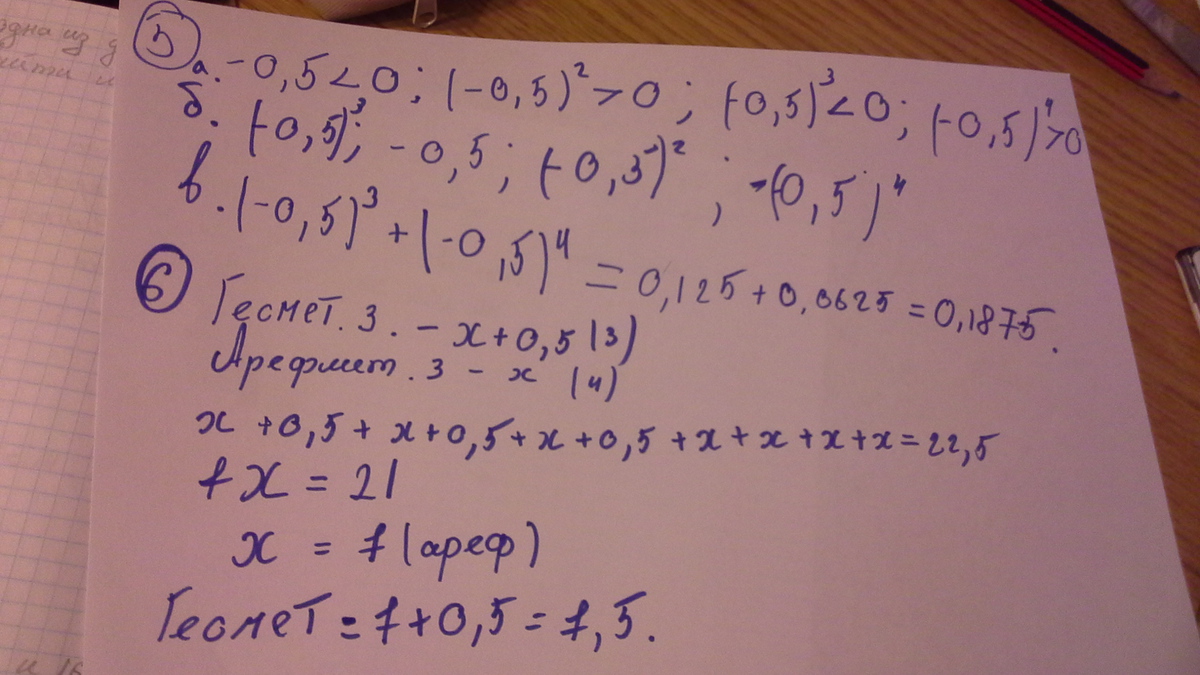 5
а. -0,5<0; (-0,5)²>0; (-0,5)³<0; (-0,5)⁴>0
б. (-0,5)³; -0,5; (-0,5)²; -(0,5)⁴
в. (-0,5)³+(-0,5)⁴=0,125+0,0625=0,1875.
6
Геомет. з. - x+0,5 (3)
Арефмит. з - x (4)
x+0,5+x+0,5+x+0,5+x+x+x+x=22,5
7x=21
x=7 (ареф)
Геомет=7+0,5=7,5.